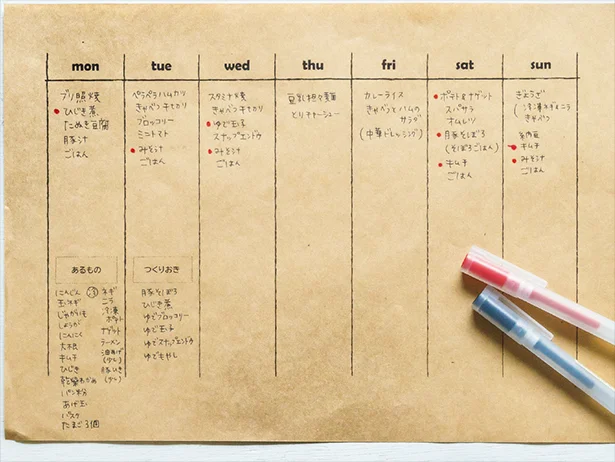 mon
tue
wed
thu
fri
sat
sun
ブリ照焼
ひじき煮
たぬき豆腐
豚汁
ごはん
ペラペラハムカツ
きゃべつ千切り
ブロッコリー
ミニトマト
みそ汁
ごはん
スタミナ焼
きゃべつ千切り
ゆで玉子
スナップエンドウ
みそ汁
ごはん
豆乳担々麺
とりチャーシュー
カレーライス
きゃべつとハムの
サラダ
(中華ドレッシング)
ポテト&ナゲット
スパサラ
オムレツ
豚そぼろ
(そぼろごはん)
キムチ
ごはん
ぎょうざ
(冷凍ネギ&ニラ
きゃべつ
納豆
キムチ
みそ汁
ごはん
あるもの
にんじん
玉ネギ
じゃがいも
しょうが
にんにく
大根
キムチ
ひじき
乾燥わかめ
パン粉
あげ玉
パスタ
たまご3個
冷
ネギ
ニラ
冷凍
ポテト
ナゲット
ラーメン
油あげ
(少し)
豚ひき
(少し)
つくりおき
豚そぼろ
ひじき煮
ゆでブロッコリー
ゆで玉子
ゆでスナップエンドウ
ゆでもやし